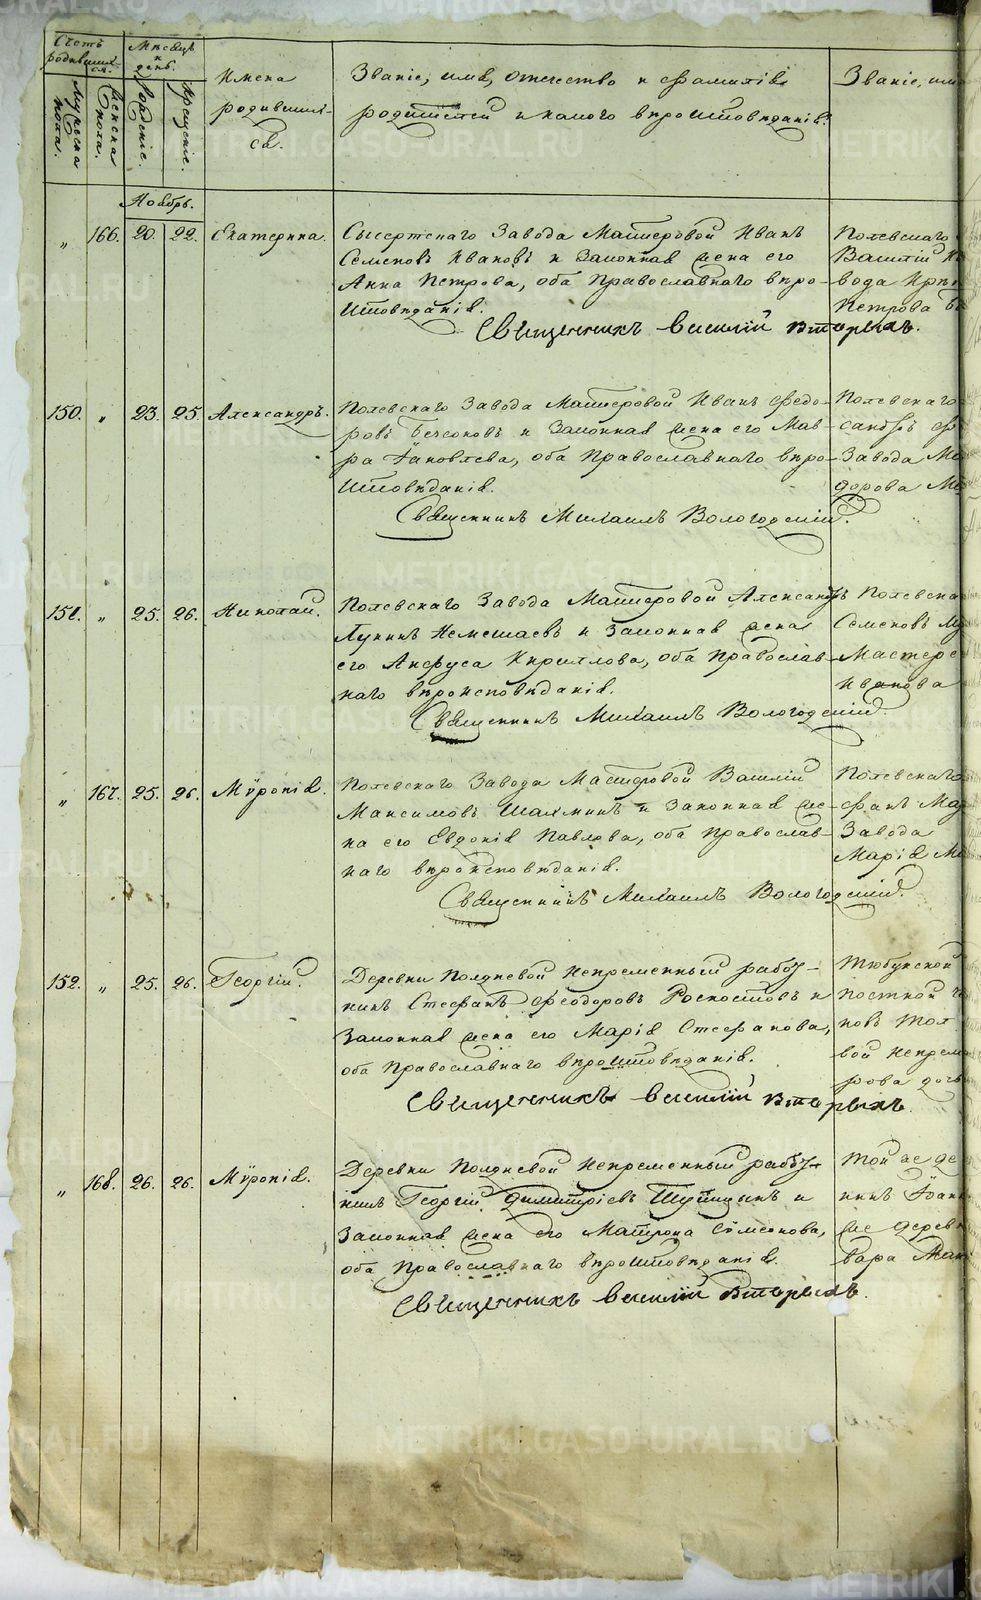 Счетъ родившихся.
Мѣсяцъ и день.
Мужеска пола.
Женска пола.
Рожденіе.
Крещеніе.
Имена
родивших-
ся.
Званіе, имя, отчество и фамилія
родителей и какого вѣроисповѣданія.
Званіе, имя
Ноябрь.
„ 166. 20. 22. Екатерина.
Сысертскаго Завода Мастеровой Иванъ
Семеновъ Ивановъ и Законная жена его
Анна Петрова, оба Православнаго вѣро-
исповѣданія.
Священникъ Василій Вторыхъ.
Полевскаго
Василій
вода
Петрова
150. „ 23. 25. Александръ.
Полевскаго Завода Мастеровой Иванъ Федо-
ровъ и Законная жена его Мав-
ра Яковлева, оба Православнаго вѣро-
исповѣданія.
Священникъ Михаилъ Вологодскій.
Полевскаго
Завода
дорова
151. „ 25. 26. Николай.
Полевскаго Завода Мастеровой Александръ
Лукинъ Немешаевъ и Законная жена
его Анфуса Кириллова, оба Православ-
наго вѣроисповѣданія.
Священникъ Михаилъ Вологодскій.
Полевска
Семеновъ
Мастеро
Иванова
„ 167. 25. 26. Мѵропія.
Полевскаго Завода Мастеровой Василій
Максимовъ Шахминъ и Законная же-
на его Евдокія Павлова, оба Православ-
наго вѣроисповѣданія.
Священникъ Михаилъ Вологодскій.
Полевскаго
фанъ
Завода
Марія
152. „ 25. 26. Георгій.
Деревни Полдневой Непременный работ-
никъ Стефанъ Феодоровъ и
Законная жена его Марія Стефанова,
оба Православнаго вѣроисповѣданія.
Священникъ Василій Вторыхъ.
Тюбукской
новъ
вой Непрем
рова дочь
„ 168. 26. 26. Мѵропія.
Деревни Полдневой Непременный работ-
никъ Георгій Димитріевъ и
Законная жена его Матрона Симеонова,
оба Православнаго вѣроисповѣданія.
Священникъ Василій Вторыхъ.
Той же де
никъ
же дерев
вара
METRIKI.GASO-URAL.RU